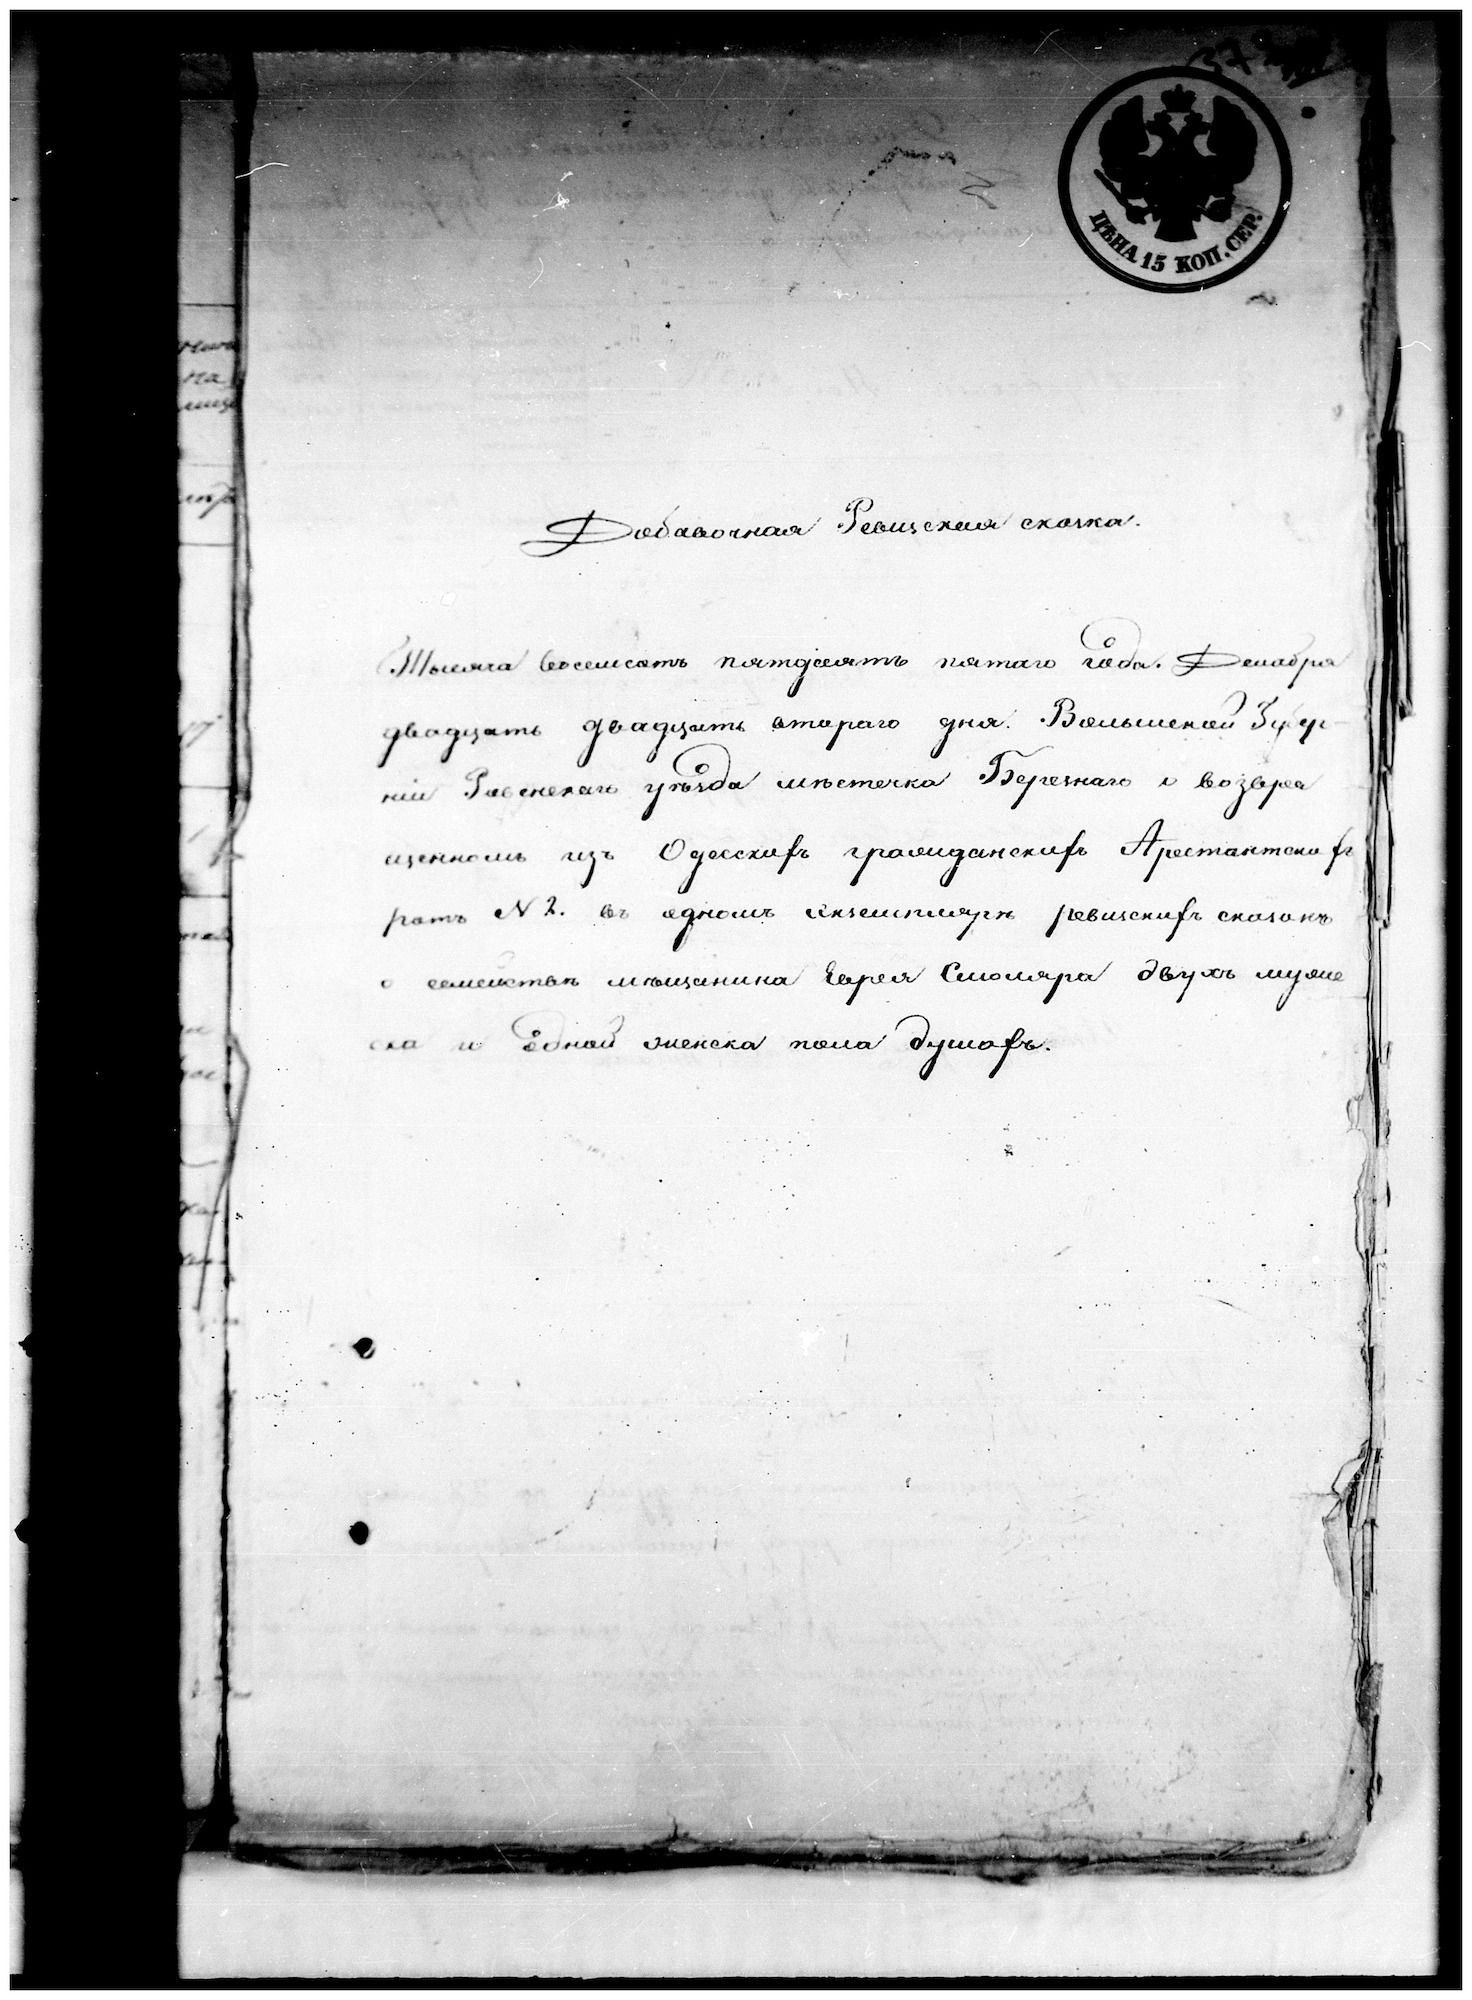 ЦѢНА 15 КОП. СЕР.
Добавочная Ревизская сказка.
Тысяча восемсотъ пятдесятъ пятаго года. Декабря
двадцать двадцать втораго дня. Волынской Губер-
ніи Ровенскаго уѣзда мѣстечка Березнаго о возвра
щенномъ изъ Одесскихъ гражданскихъ Арестантскихъ
ротъ N 2. въ одномъ екземплярѣ ревизскихъ сказокъ
о семействѣ мѣщанина Еврея Смоляра двухъ муже
ска и Едной женска пола душахъ.